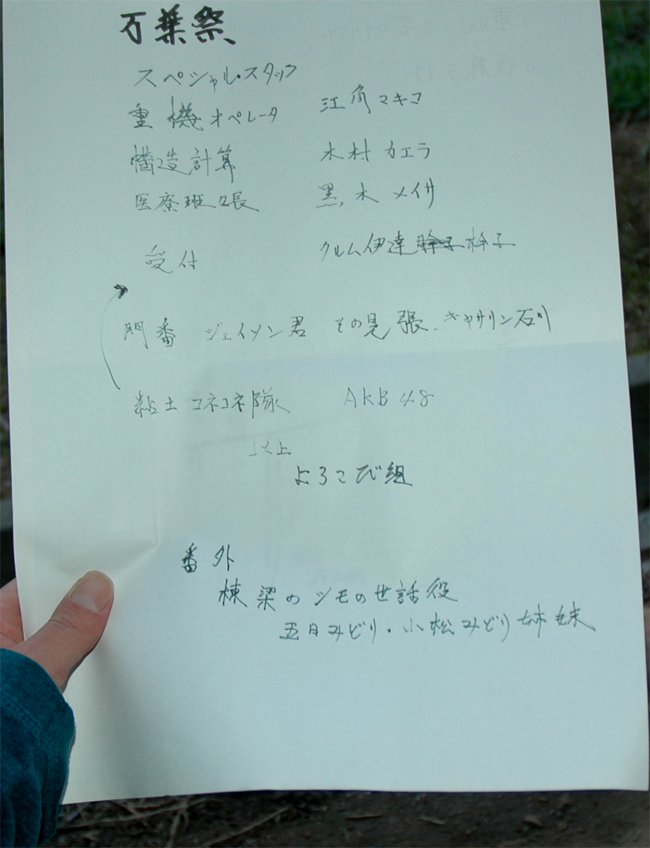 万葉祭
スペシャル・スタッフ
重機オペレータ 江角マキコ
構造計算 木村カエラ
医療班班長 黒木メイサ
受付 クルム伊達 杵子
門番 ジェイソン君 その見張、キャサリン石川
粘土コネコネ隊 AKB48
以上
よろこび組
番外
棟梁のシモの世話役
五月みどり・小松みどり姉妹